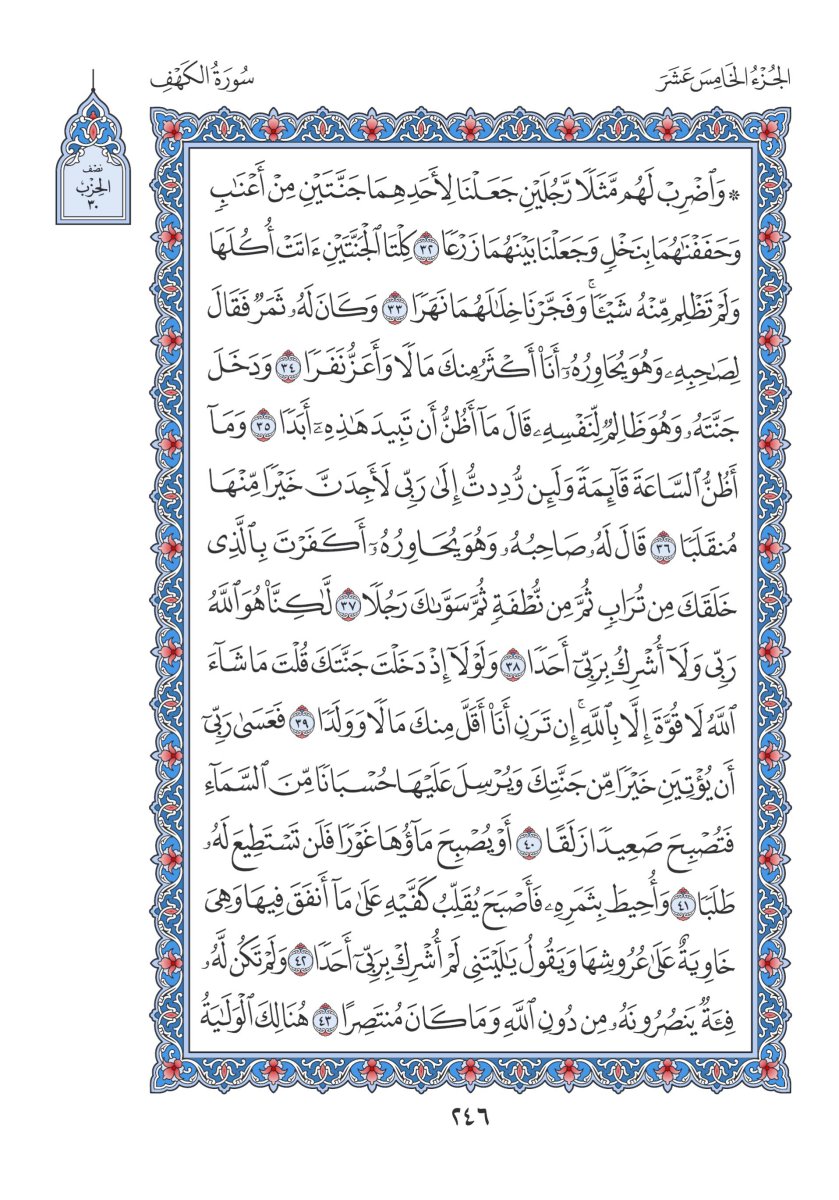 الجُزْءُ الخَامِسَ عَشَرَ
سُورَةُ الكَهْفِ
نصف
الحِزْب
٣٠
۞ وَٱضۡرِبۡ لَهُم مَّثَلٗا رَّجُلَيۡنِ جَعَلۡنَا لِأَحَدِهِمَا جَنَّتَيۡنِ مِنۡ أَعۡنَٰبٖ
وَحَفَفۡنَٰهُمَا بِنَخۡلٖ وَجَعَلۡنَا بَيۡنَهُمَا زَرۡعٗا ٣٢ كِلۡتَا ٱلۡجَنَّتَيۡنِ ءَاتَتۡ أُكُلَهَا
وَلَمۡ تَظۡلِم مِّنۡهُ شَيۡـٔٗاۚ وَفَجَّرۡنَا خِلَٰلَهُمَا نَهَرٗا ٣٣ وَكَانَ لَهُۥ ثَمَرٞ فَقَالَ
لِصَٰحِبِهِۦ وَهُوَ يُحَاوِرُهُۥٓ أَنَا۠ أَكۡثَرُ مِنكَ مَالٗا وَأَعَزُّ نَفَرٗا ٣٤ وَدَخَلَ
جَنَّتَهُۥ وَهُوَ ظَالِمٞ لِّنَفۡسِهِۦ قَالَ مَآ أَظُنُّ أَن تَبِيدَ هَٰذِهِۦٓ أَبَدٗا ٣٥ وَمَآ
أَظُنُّ ٱلسَّاعَةَ قَآئِمَةٗ وَلَئِن رُّدِدتُّ إِلَىٰ رَبِّي لَأَجِدَنَّ خَيۡرٗا مِّنۡهَا
مُنقَلَبٗا ٣٦ قَالَ لَهُۥ صَاحِبُهُۥ وَهُوَ يُحَاوِرُهُۥٓ أَكَفَرۡتَ بِٱلَّذِي
خَلَقَكَ مِن تُرَابٖ ثُمَّ مِن نُّطۡفَةٖ ثُمَّ سَوَّىٰكَ رَجُلٗا ٣٧ لَّٰكِنَّا۠ هُوَ ٱللَّهُ
رَبِّي وَلَآ أُشۡرِكُ بِرَبِّيٓ أَحَدٗا ٣٨ وَلَوۡلَآ إِذۡ دَخَلۡتَ جَنَّتَكَ قُلۡتَ مَا شَآءَ
ٱللَّهُ لَا قُوَّةَ إِلَّا بِٱللَّهِۚ إِن تَرَنِ أَنَا۠ أَقَلَّ مِنكَ مَالٗا وَوَلَدٗا ٣٩ فَعَسَىٰ رَبِّيٓ
أَن يُؤۡتِيَنِ خَيۡرٗا مِّن جَنَّتِكَ وَيُرۡسِلَ عَلَيۡهَا حُسۡبَانٗا مِّنَ ٱلسَّمَآءِ
فَتُصۡبِحَ صَعِيدٗا زَلَقًا ٤٠ أَوۡ يُصۡبِحَ مَآؤُهَا غَوۡرٗا فَلَن تَسۡتَطِيعَ لَهُۥ
طَلَبٗا ٤١ وَأُحِيطَ بِثَمَرِهِۦ فَأَصۡبَحَ يُقَلِّبُ كَفَّيۡهِ عَلَىٰ مَآ أَنفَقَ فِيهَا وَهِيَ
خَاوِيَةٌ عَلَىٰ عُرُوشِهَا وَيَقُولُ يَٰلَيۡتَنِي لَمۡ أُشۡرِكۡ بِرَبِّيٓ أَحَدٗا ٤٢ وَلَمۡ تَكُن لَّهُۥ
فِئَةٞ يَنصُرُونَهُۥ مِن دُونِ ٱللَّهِ وَمَا كَانَ مُنتَصِرًا ٤٣ هُنَالِكَ ٱلۡوَلَٰيَةُ
٢٤٦